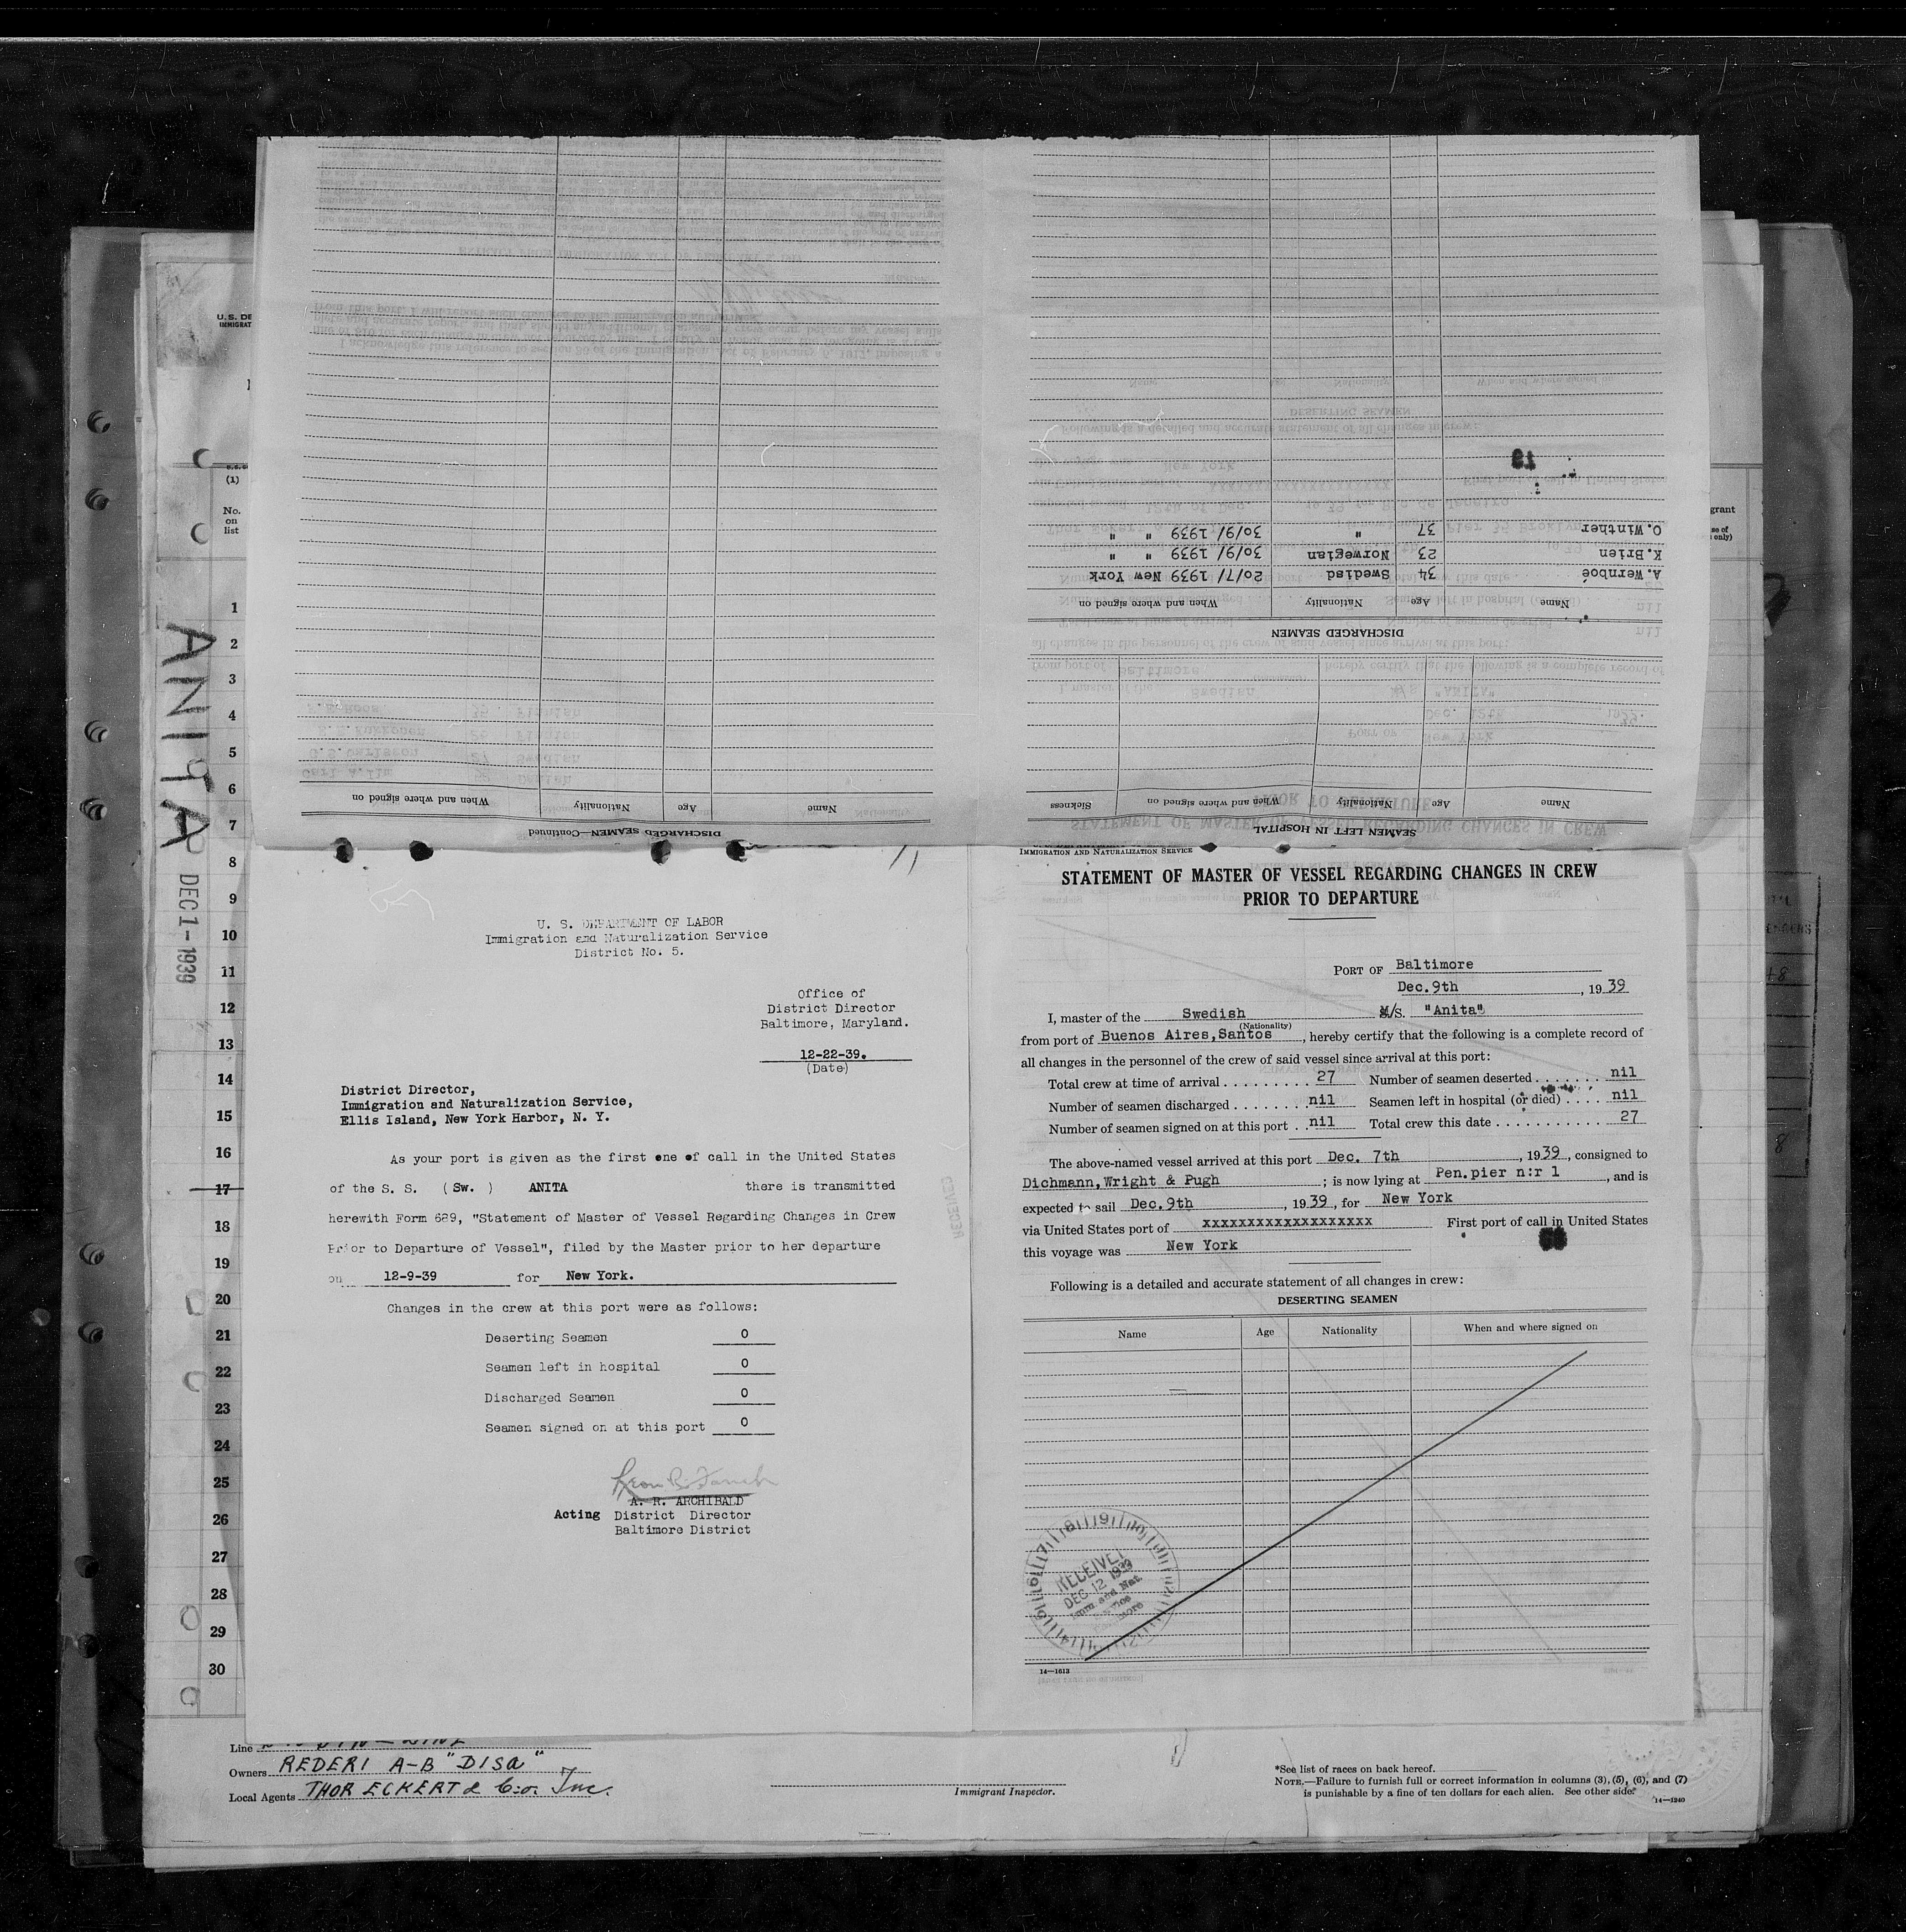 DISCHARGED SEAMEN—Continued
Name Age Nationality When and where signed on
SEAMEN LEFT IN HOSPITAL
Name Age Nationality When and where signed on Sickness
DISCHARGED SEAMEN
Name Age Nationality When and where signed on
A. Wernboé 34 Swedisd 20/7/ 1939 New York
K. Brien 23 Norwegian 30/9/ 1939 " "
O. Winther 37 " 30/9/ 1939 " "
U. S. DEPARTMENT OF LABOR
Immigration and Naturalization Service
District No. 5.
Office of
District Director
Baltimore, Maryland.
12-22-39.
(Date)
District Director,
Immigration and Naturalization Service,
Ellis Island, New York Harbor, N. Y.
As your port is given as the first one of call in the United States
of the S. S. (Sw. ) ANITA there is transmitted
herewith Form 689, "Statement of Master of Vessel Regarding Changes in Crew
Prior to Departure of Vessel", filed by the Master prior to her departure
on 12-9-39 for New York.
Changes in the crew at this port were as follows:
Deserting Seamen 0
Seamen left in hospital 0
Discharged Seamen 0
Seamen signed on at this port 0
A. R. ARCHIBALD
Acting District Director
Baltimore District
IMMIGRATION AND NATURALIZATION SERVICE
STATEMENT OF MASTER OF VESSEL REGARDING CHANGES IN CREW
PRIOR TO DEPARTURE
PORT OF Baltimore
Dec.9th, 1939
I, master of the Swedish M/S. "Anita"
(Nationality)
from port of Buenos Aires,Santos, hereby certify that the following is a complete record of
all changes in the personnel of the crew of said vessel since arrival at this port:
Total crew at time of arrival . . . . . . . . . 27 Number of seamen deserted . . . . . . . nil
Number of seamen discharged . . . . . . . . nil Seamen left in hospital (or died) . . . . nil
Number of seamen signed on at this port . . nil Total crew this date . . . . . . . . . . . 27
The above-named vessel arrived at this port Dec. 7th, 1939, consigned to
Dichmann,Wright & Pugh ; is now lying at Pen.pier n:r 1, and is
expected to sail Dec.9th, 1939, for New York
via United States port of xxxxxxxxxxxxxxxxxxx First port of call in United States
this voyage was New York
Following is a detailed and accurate statement of all changes in crew:
DESERTING SEAMEN
Name Age Nationality When and where signed on
RECEIVED
DEC 12 1939
Imm and Nat
14—1613
U. S. DE
IMMIGRAT
(1)
No.
on
list
1
2
3
4
5
6
7
8
9
10
11
12
13
14
15
16
17
18
19
20
21
22
23
24
25
26
27
28
29
30
ANITA
DEC 1-1939
Line
Owners REDERI A-B "DISA"
Local Agents THOR ECKERT & C:o. Inc.
Immigrant Inspector.
*See list of races on back hereof.
NOTE.—Failure to furnish full or correct information in columns (3), (5), (6), and (7)
is punishable by a fine of ten dollars for each alien. See other side.
14—1240